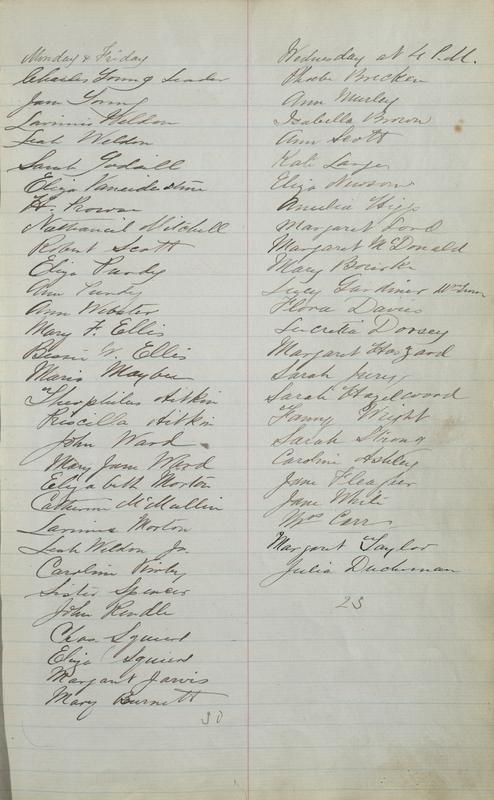 Monday & Friday
Charles Young Leader
Jane Young
Lavinia Weldon
Leah Weldon
Sarah
Eliza
H. Prowse
Nathanael Mitchell
Robert Scott
Eliza Purdy
Ann Purdy
Ann Webster
Mary F. Ellis
Bessie W. Ellis
Maria Maybee
Theophilus Aitkin
Priscilla Aitkin
John Ward
Mary Jane Ward
Elizabeth Morton
Catherine McMullin
Lavinia Morton
Leah Weldon Jr.
Caroline
Sister Spencer
John Rendle
Chas Squires
Eliza Squires
Margaret Jarvis
Mary Burnett
30
Wednesday at 4 P.M.
Phoebe Bricken
Ann Murley
Isabella Brown
Ann Scott
Kate Large
Eliza Newson
Amelia
Margaret Lord
Margaret McDonald
Mary Bourke
Lucy Gardiner
Flora Davies
Lucretia Dorsey
Margaret Haszard
Sarah
Sarah Hazelwood
Fanny Wright
Sarah Strong
Caroline Ashley
Jane
Jane White
Mrs Carr
Margaret Taylor
Julia Duchman
23